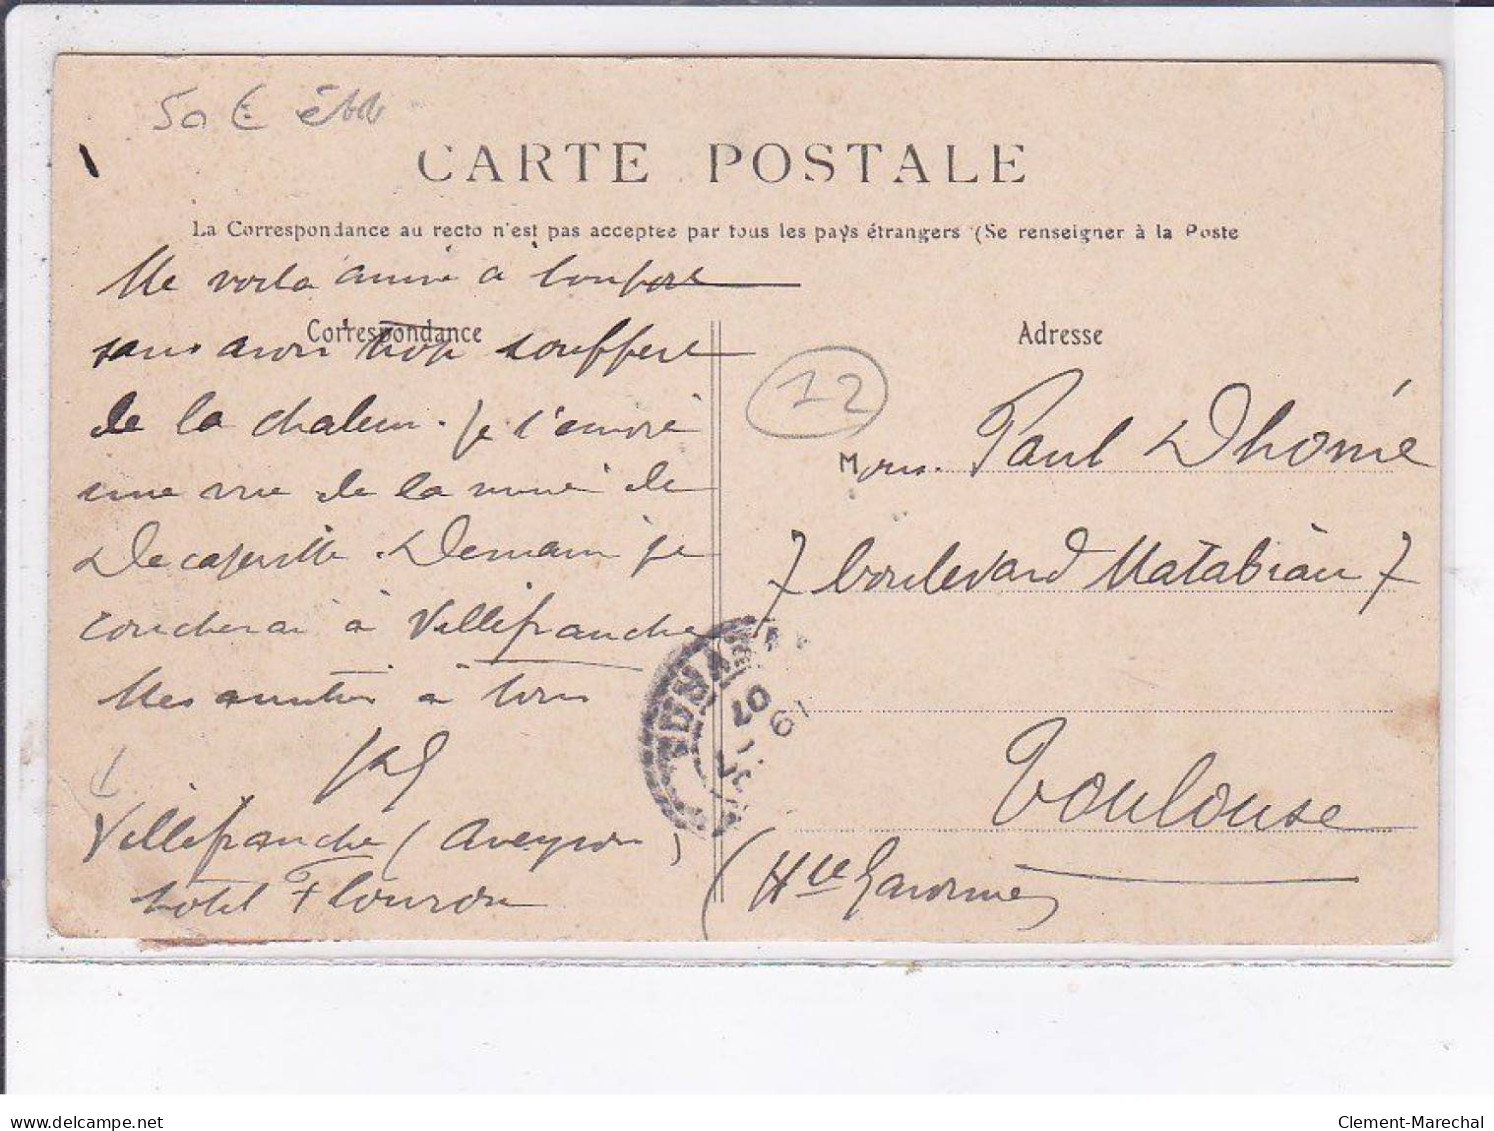 50 €
CARTE POSTALE
La Correspondance au recto n'est pas acceptée par tous les pays étrangers (Se renseigner à la Poste
Me voila arrivé à
Correspondance
sans avoir trop souffert
de la chaleur. je t'envoie
une vue de la mine de
Decazeville. Demain je
coucherai à Villefranche
Mes amitiés à tous
Villefranche (Aveyron)
hotel Flouron
Adresse
12
Mons. Paul Dhomé
7 boulevard Matabiau 7
Toulouse
(Hte Garonne)
07
delcampe.net
Clement-Marechal